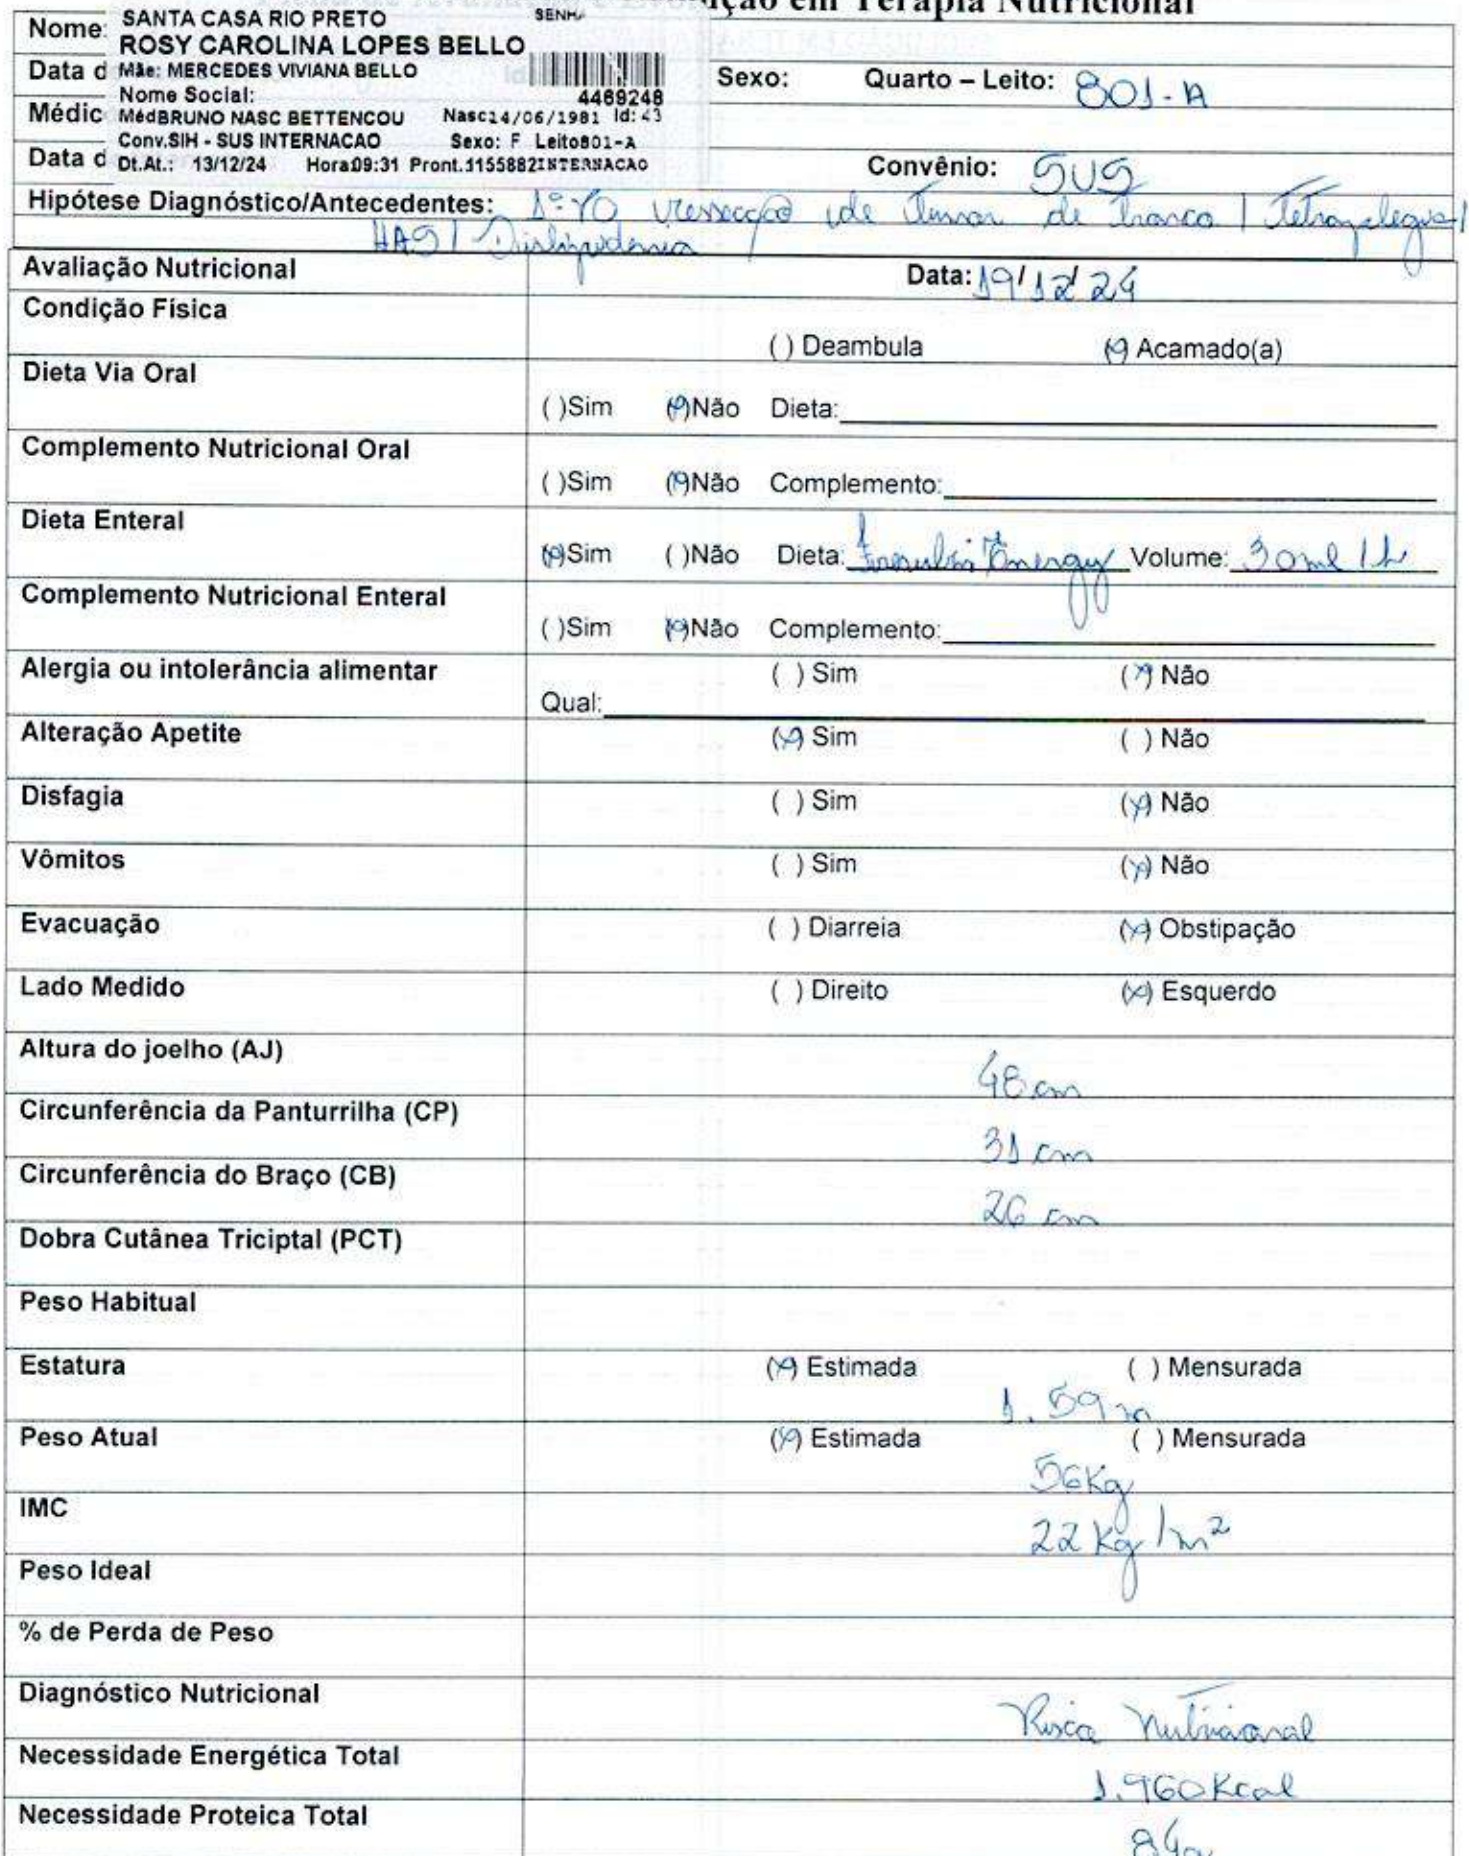 ção em Terapia Nutricional
Nome: SANTA CASA RIO PRETO
ROSY CAROLINA LOPES BELLO
Data d Mãe: MERCEDES VIVIANA BELLO Sexo: Quarto – Leito: 801-A
Nome Social: 4469248
Médic MédBRUNO NASC BETTENCOU Nasc14/06/1981 Id: 43
Conv.SIH - SUS INTERNACAO Sexo: F Leito801-A
Data d Dt.At.: 13/12/24 Hora09:31 Pront.1155882INTERNACAO Convênio: SUS
Hipótese Diagnóstico/Antecedentes: 1º PO ressecção de tumor de tronco / Tetraplegia /
HAS / Dislipidemia
Avaliação Nutricional Data: 19/12/24
Condição Física
( ) Deambula (x) Acamado(a)
Dieta Via Oral
( )Sim (x)Não Dieta:
Complemento Nutricional Oral
( )Sim (x)Não Complemento:
Dieta Enteral
(x)Sim ( )Não Dieta: Fresubin Energy Volume: 30ml/h
Complemento Nutricional Enteral
( )Sim (x)Não Complemento:
Alergia ou intolerância alimentar ( ) Sim (x) Não
Qual:
Alteração Apetite (x) Sim ( ) Não
Disfagia ( ) Sim (x) Não
Vômitos ( ) Sim (x) Não
Evacuação ( ) Diarreia (x) Obstipação
Lado Medido ( ) Direito (x) Esquerdo
Altura do joelho (AJ) 48 cm
Circunferência da Panturrilha (CP) 31 cm
Circunferência do Braço (CB) 26 cm
Dobra Cutânea Triciptal (PCT)
Peso Habitual
Estatura (x) Estimada ( ) Mensurada
1.59m
Peso Atual (x) Estimada ( ) Mensurada
56Kg
IMC 22 Kg/m²
Peso Ideal
% de Perda de Peso
Diagnóstico Nutricional Risco Nutricional
Necessidade Energética Total 1.960Kcal
Necessidade Proteica Total 84g